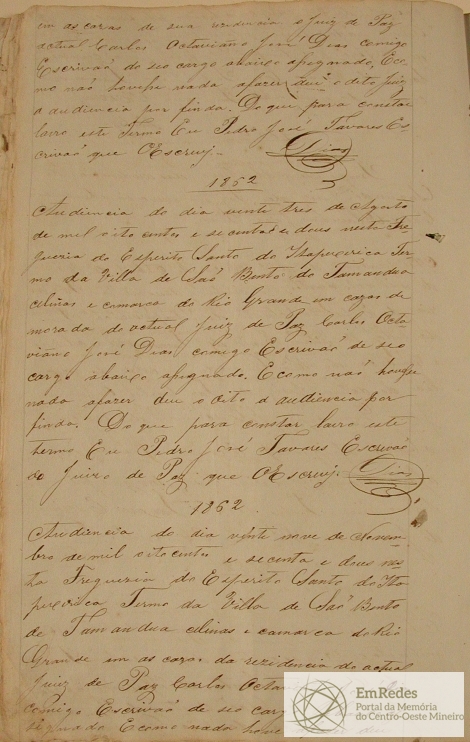 em as cazas de sua rezidencia o Juiz de Paz
actual Carlos Octaviano José Dias comigo
Escrivaõ do seo cargo abaiço asignado, Eco-
mo naõ houvese nada afazer deu o dito Juiz
a audiencia por finda. Do que para constar
lavro este Termo Eu Pedro José Tavares Es-
crivaõ que OEscrevj.
Dias
1862
Audiencia do dia vente tres de Agosto
de mil oito centos e secenta e dous nesta Fre-
gueria do Esperito Santo do Itapecerica Ter-
mo da Villa de Saõ Bento do Tamandua
Minas e comarca do Rio Grande em cazas de
morada do actual Juiz de Paz Carlos Octa-
viano José Dias comigo Escrivaõ de seo
cargo abaiço asignado. E como naõ houvese
nada afazer deu o dito a audiencia por
finda. Do que para constar lavro este
termo Eu Pedro José Tavares Escrivaõ
do Juizo de Paz que OEscrevj.
Dias
1862
Audiencia do dia vinte nove de Novem-
bro de mil oito centos e secenta e dous nes-
ta Fregueria do Esperito Santo do Ita
pecerica Termo da Villa de Saõ Bento
de Tamandua Minas e comarca do Rio
Grande em as cazas da rezidencia do actual
Juiz de Paz Carlos Octa
comigo Escrivaõ de seo carg
signado E como nada houve
EmRedes
Portal da Memória
do Centro-Oeste Mineiro